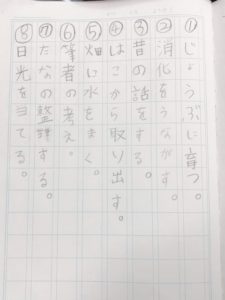 ①じょうぶに育つ。
②消化をうながす。
③昔の話をする。
④はこから取り出す。
⑤畑に水をまく。
⑥筆者の考え。
⑦たなの整理する。
⑧日光を当てる。